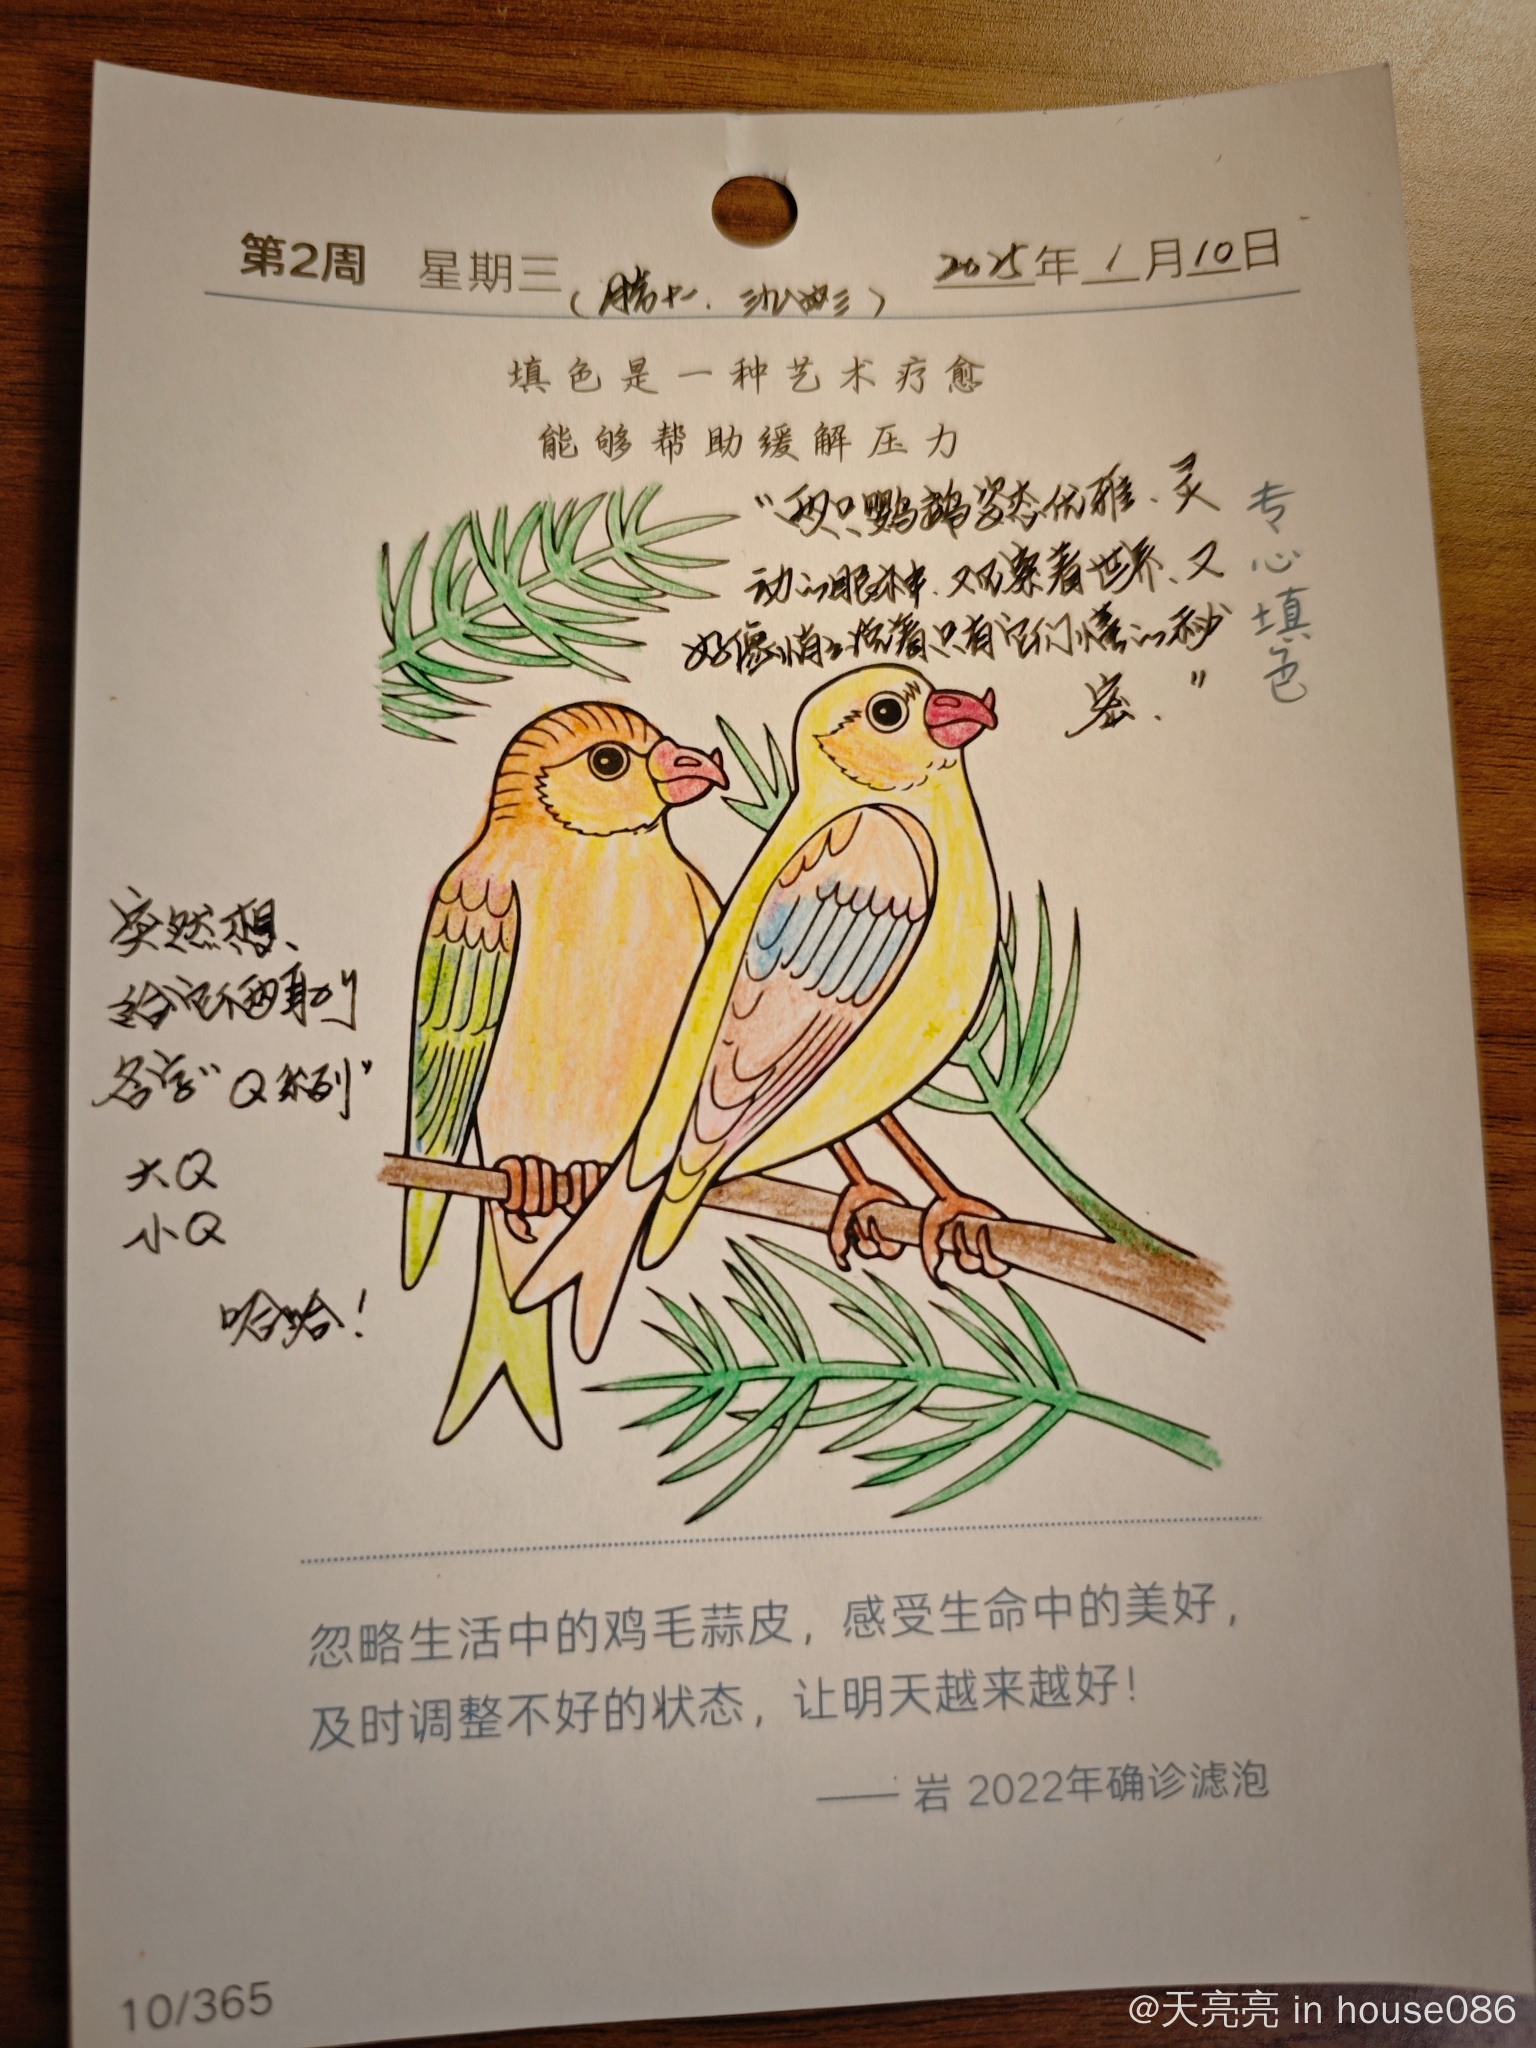 第2周 星期三 2025年1月10日
(腊十一. 三九第三)
填色是一种艺术疗愈
能够帮助缓解压力
“两只鹦鹉姿态优雅、灵
动的眼神.又观察着世界、又
好像悄悄说着只有它们懂的秘
密.”
专心填色
突然想、
给它俩取个
名字“Q系列”
大Q
小Q
哈哈!
忽略生活中的鸡毛蒜皮，感受生命中的美好，
及时调整不好的状态，让明天越来越好！
—— 岩 2022年确诊滤泡
10/365
@天亮亮 in house086